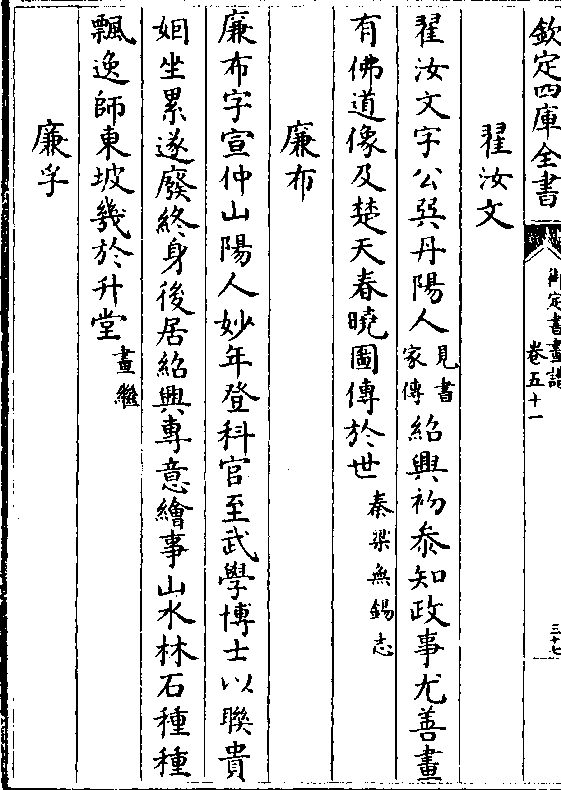 欽定四庫全書
御定書畫譜
卷五十一
三十七
翟汝文
翟汝文字公巽丹陽人見書家傳紹興初參知政事尤善畫
有佛道像及楚天春曉圖傳於世秦梁無錫志
廉布
廉布字宣仲山陽人妙年登科官至武學博士以聯貴
姻坐累遂廢終身後居紹興專意繪事山水林石種種
飄逸師東坡幾於升堂畫繼
廉孚